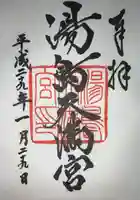 奉拝
湯島天満宮
平成二九年一月二九日